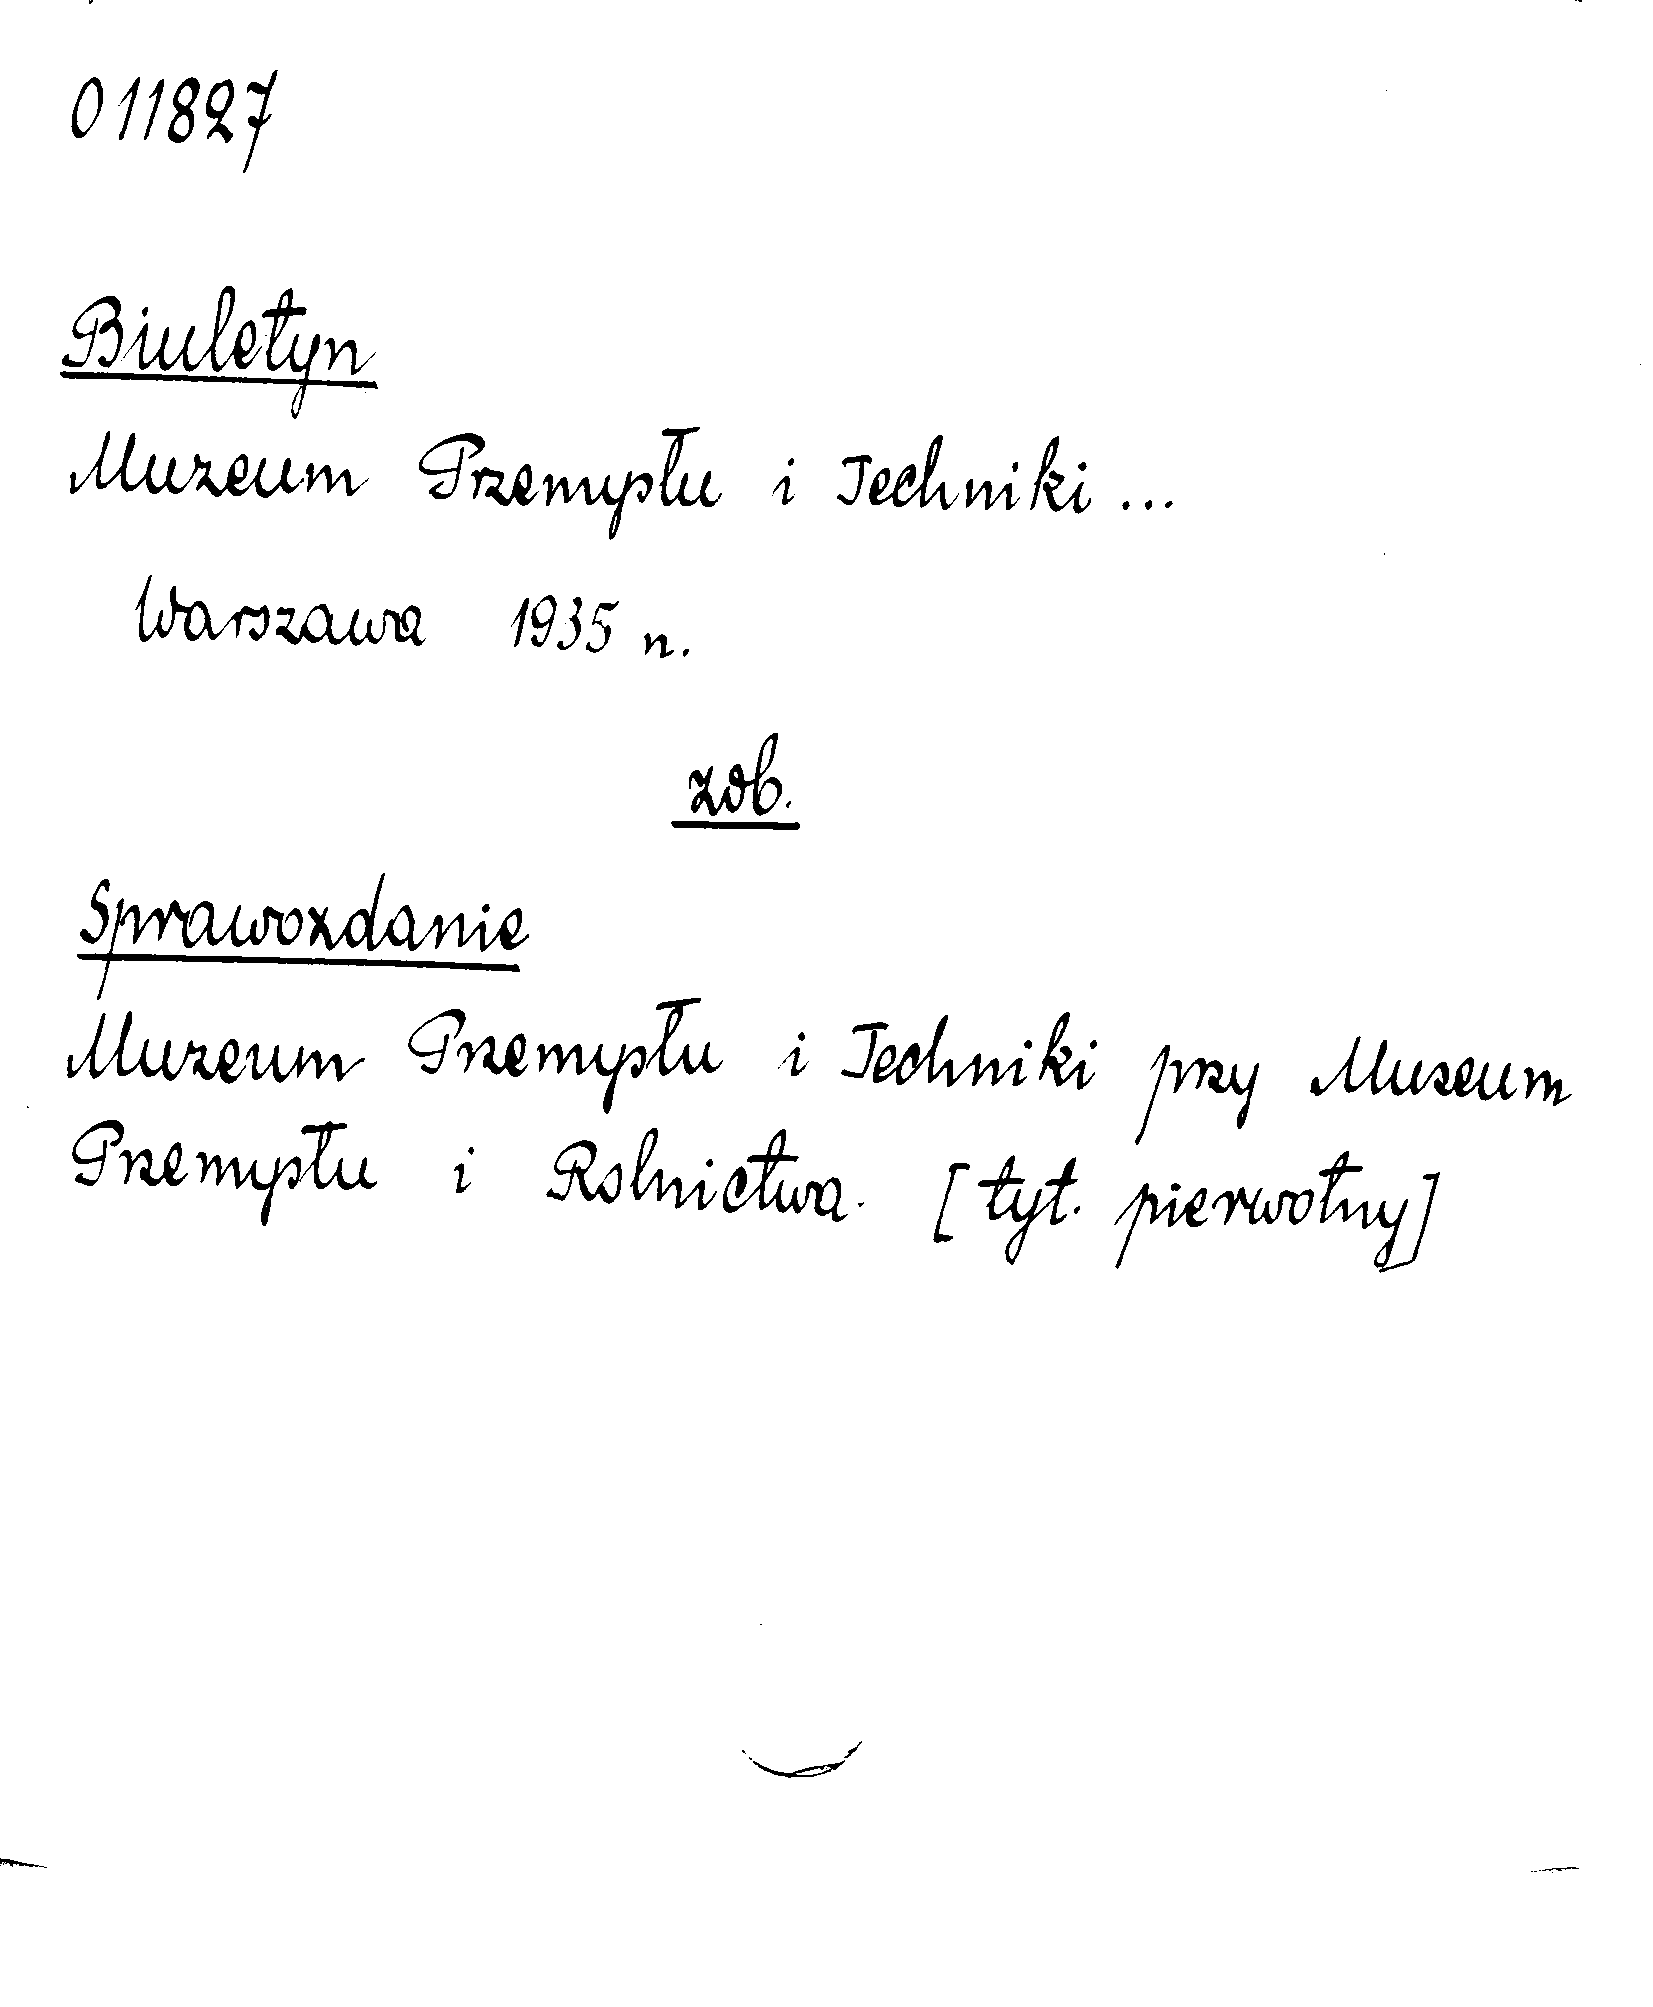 011827
Biuletyn
Muzeum Przemysłu i Techniki...
Warszawa 1935 n.
zob.
Sprawozdanie
Muzeum Przemysłu i Techniki przy Muzeum
Przemysłu i Rolnictwa. [tyt. pierwotny]